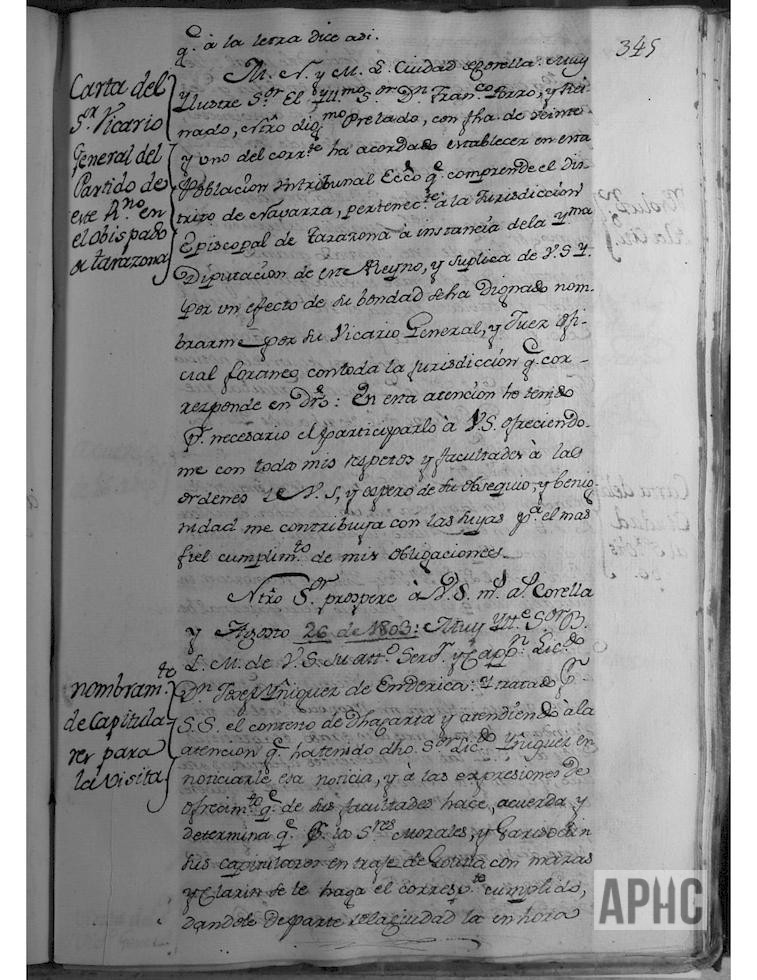 345
q.e à la letra dice asi.
M. N. y M. L. Ciudad de Corella: Muy
Yllustre S.or El Yll.mo S.or D.n Fran.co Porró, y Rei-
nado, Ntro dig.mo Prelado, con fha. de veinte
y uno del corr.te ha acordado establecer en esta
Poblacion un tribunal Ecc.o q.e comprende el Dis-
trito de Navarra, pertenec.te à la Jurisdiccion
Episcopal de Tarazona à instancia dela Y.ma
Diputacion de este Reyno, y suplica de V. S. Y.
por un efecto de su bondad se ha Dignado nom-
brarme por su Vicario General, y Juez ofi-
cial foraneo con toda la jurisdiccion q.e cor-
responde en Dro: En esta atencion he tenido
p.r necesario el participarlo à V. S. ofreciendo-
me con todos mis respetos y facultades à las
ordenes de V. S, y espero de su obsequio, y benig-
nidad me contribuya con las suyas p.a el mas
fiel cumplim.to de mis obligaciones.
Ntro S.or prospere à V. S. m.s a.s Corella
y Agosto 26 de 1803: Muy Ylt.e S.or B.
L. M. de V. S. su att.o Serv.r y Capp.n Lic.do
D.n Josef Yñiguez de Enderica: Y tratado p.r
S. S. el contesto de dha carta y atendiendo à la
atencion q.e ha tenido dho. S.or Lic.do Yñiguez en
noticiarle esa noticia, y à las expresiones de
ofrecim.to q.e de sus facultades hace, acuerda y
determina q.e p.r los S.res Morales, y Garisoain
sus capitulares en traje de Golilla con mazas
y Clarin se le haga el corresp.te cumplido,
dandole de parte de la ciudad la enhora
Carta del
S.or Vicario
General del
Partido de
este R.no en
el Obispado
de tarazona
nombram.to
de Capitula
res para
la Visita
APHC